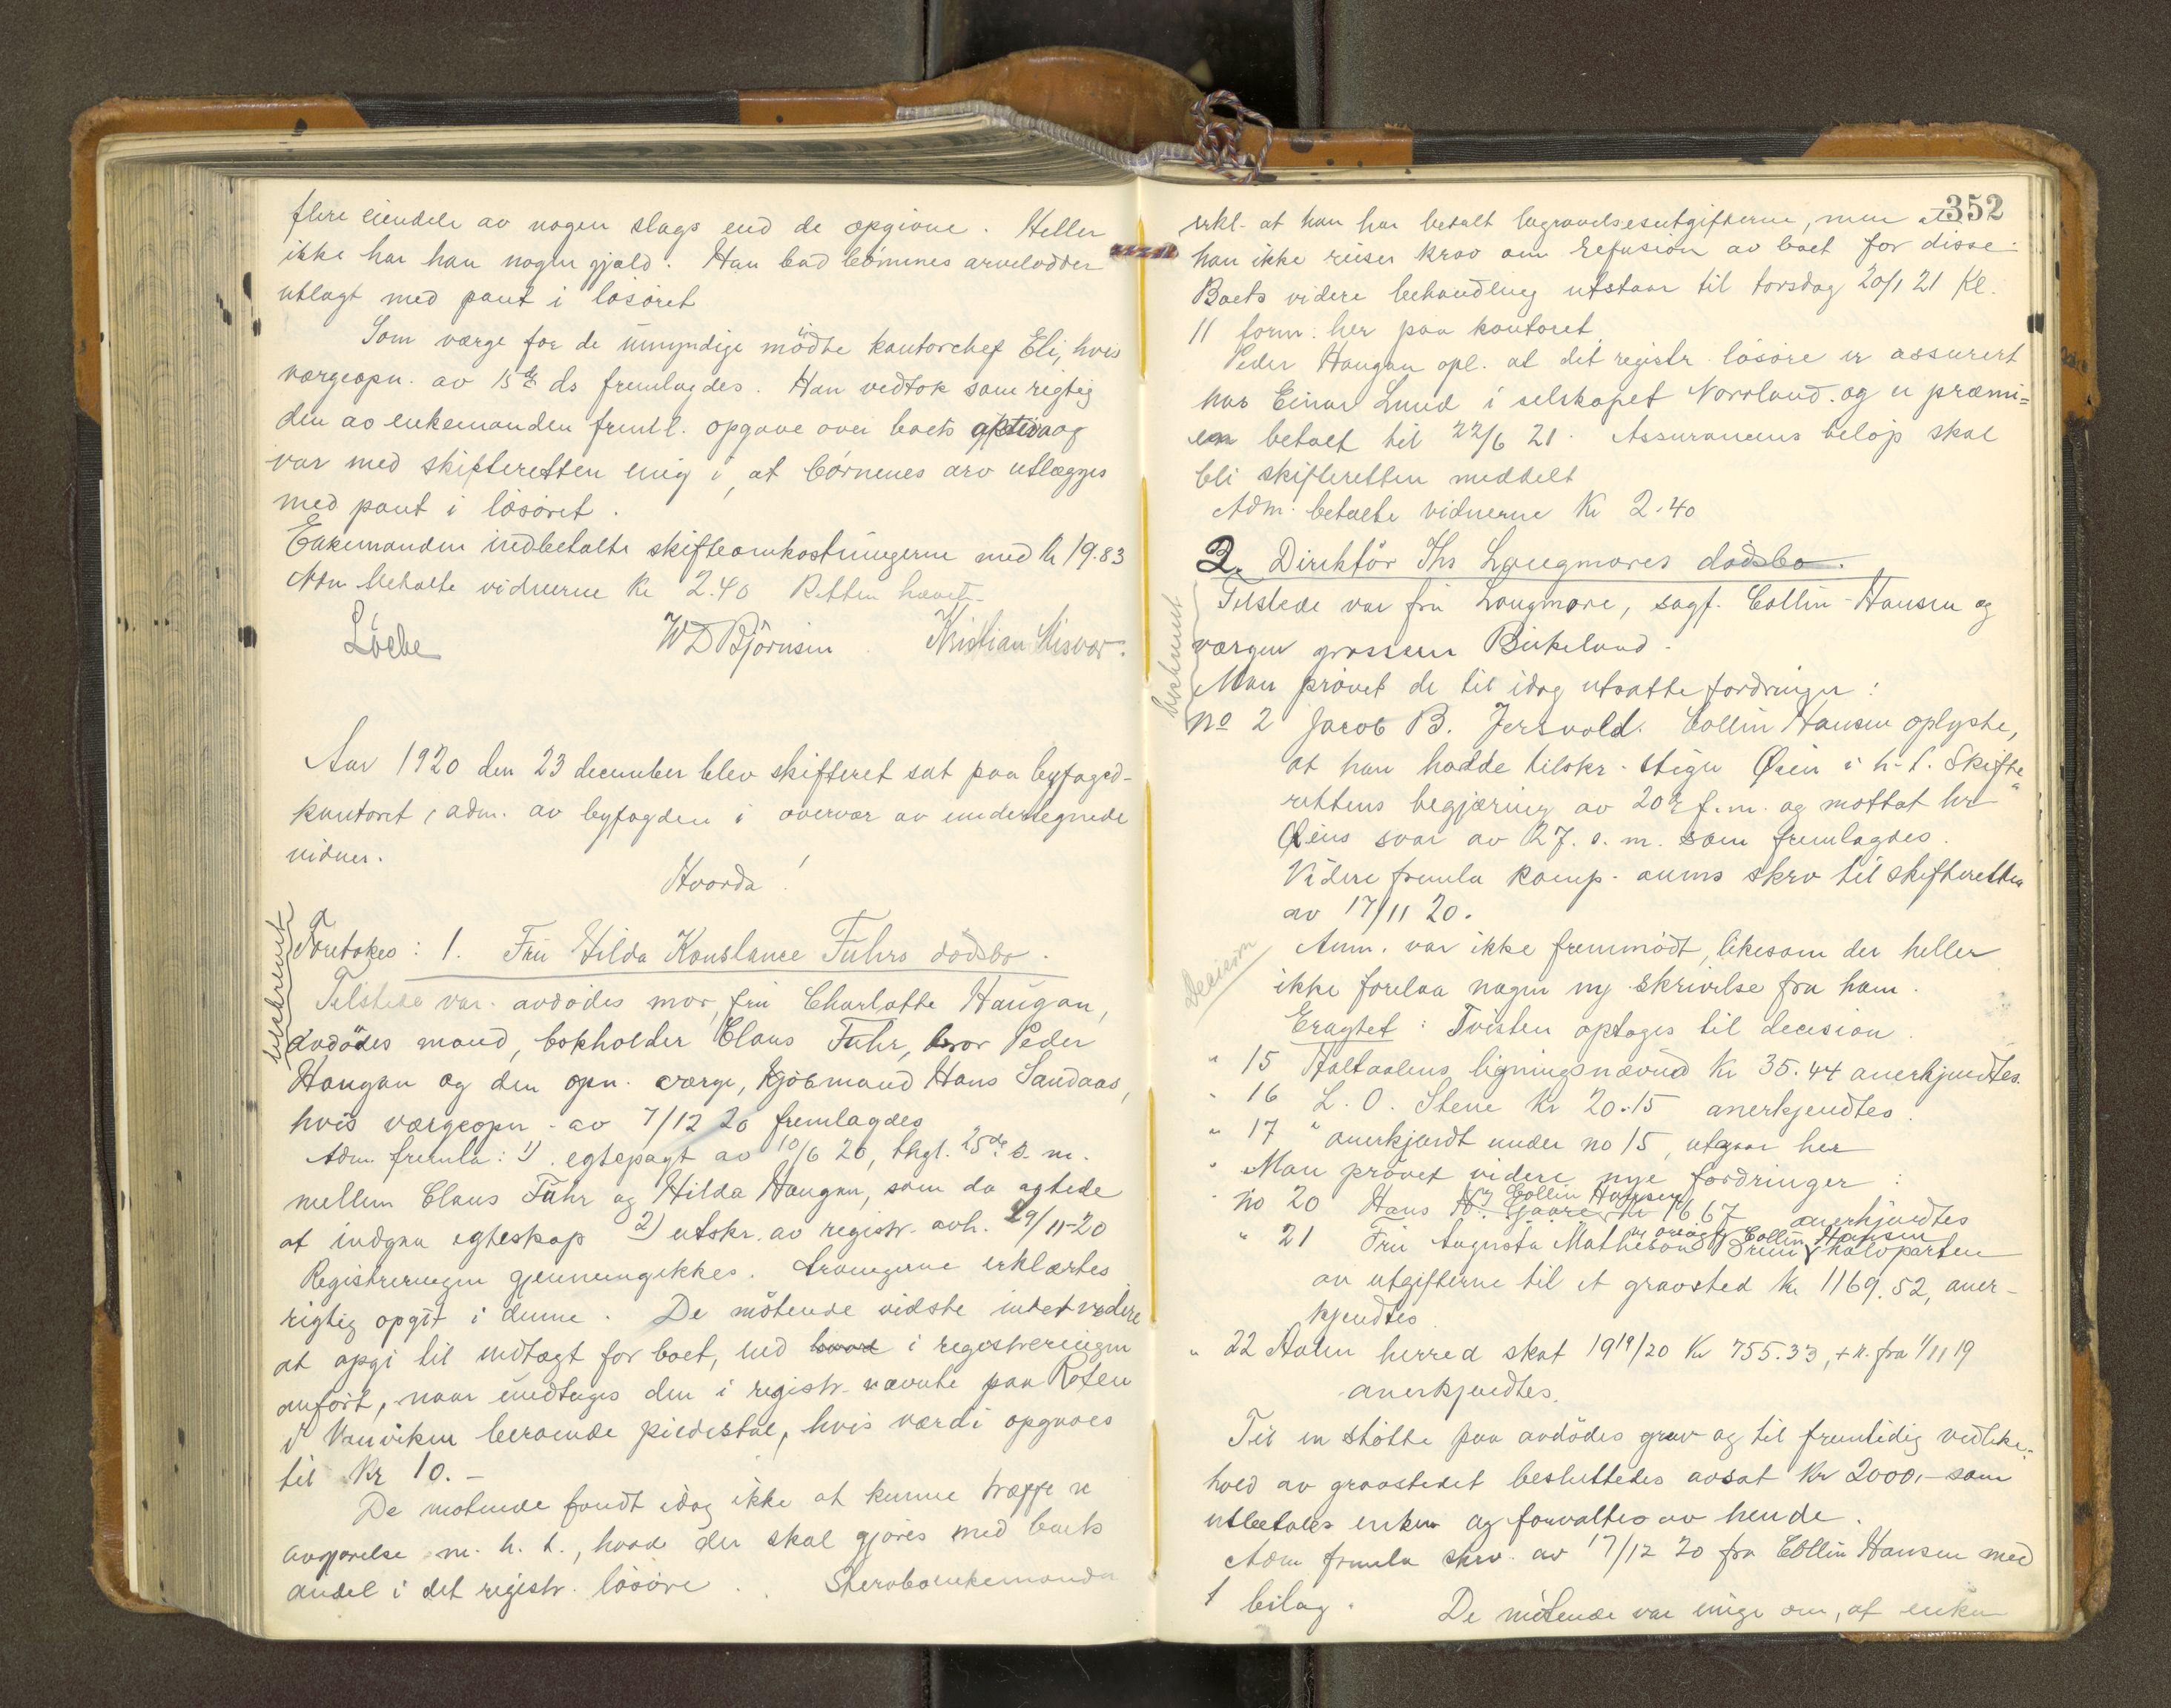 flere eiendele av nogen slags end de opgivne. Heller
ikke har han nogen gjæld. Han bad børnenes arvelodder
utlagt med pant i løsøret
Som værge for de umyndige mødte kontorchef Eli, hvis
værgeopn. av 15de ds fremlagdes. Han vedtok som rigtig
den av enkemanden freml. opgave over boets aktiva og
var med skifteretten enig i, at børnenes arv utlægges
med pant i løsøret.
Enkemanden indbetalte skifteomkostningerne med kr 19.83
Adm betalte vidnerne Kr 2.40 Retten hævet.
Løcke W D Bjørnsen Kristian Misvær.
Aar 1920 den 23 december blev skifteret sat paa byfoged-
kontoret, adm. av byfogden i overvær av undertegnede
vidner.
Hvorda!
Foretokes: 1. Fru Hilda Konstance Fuhrs dødsbo.
beskrevet
Tilstede var avdødes mor, fru Charlotte Haugan,
avdødes mand, bokholder Claus Fuhr, bror Peder
Haugan og den opn. værge, kjøbmand Hans Sandaas,
hvis værgeopn. av 7/12 20 fremlagdes
Adm. fremla: 1) egtepagt av 10/6 20, thgl. 25de s. m.
mellem Claus Fuhr og Hilda Haugan, som da agtede
at indgaa egteskap 2) utskr. av registr. avh. 29/11-20
Registreringen gjennemgikkes. Arvingerne erklærtes
rigtig opgit i denne. De møtende vidste intet videre
at opgi til indtægt for boet, end hvad i registreringen
anført, naar undtages den i registr. nævnte paa Roten
i Vanviken beroende piedestal, hvis værdi opgaves
til Kr 10.-
De møtende fandt idag ikke at kunne træffe n
avgjørelse m. h. t., hvad der skal gjøres med boets
andel i det registr. løsøre.
352
erkl. at han har betalt begravelsesutgifterne, men at
han ikke reiser krav om refusion av boet for disse.
Boets videre behandling utstaar til torsdag 20/1 21 Kl.
11 form. her paa kontoret.
Peder Haugan opl. at det registr. løsøre er assurert
hos Einar Lund i selskapet Norrland. og er præmi=
en betalt til 22/6 21. Assuransens beløp skal
bli skifteretten meddelt
Adm. betalte vidnerne Kr 2.40
2. Direktør Ths Longmores dødsbo.
beskrevet
Tilstede var fru Longmore, sagf. Collin-Hansen og
værgen grosserer Birkeland.
Man prøvet de til idag utsatte fordringer:
No 2 Jacob B. Jersvold. Collin Hansen oplyste,
at han hadde tilskr. Stiger Øien i h. t. Skifte
rettens begjæring av 20de f. m. og mottat hr
Øiens svar av 27. s. m. som fremlagdes.
Videre fremla komp. anms skrv til skifteretten
av 17/11 20.
Decision
Anm. var ikke fremmødt, likesom der heller
ikke forelaa nogen ny skrivelse fra ham.
Eragtet: Tvisten optages til decision.
" 15 Haltdalens ligningsnævnd Kr 35.44 anerkjendtes.
" 16 L. O. Stene Kr 20.15 anerkjendtes.
" 17 " anerkjendt under no 15, utgaar her
" Man prøvet videre nye fordringer:
No 20 Hans 16 67 anerkjendtes
Collin Hansen
" 21 Fru Augusta Mathesons halvparten
Collin Hansen
av utgifterne til et gravsted Kr 1169.52, aner-
kjendtes.
" 22 Aalen herred skat 1919/20 Kr 755.33, + r. fra 1/11 19
anerkjendtes.
Til en støtte paa avdødes grav og til fremtidig vedlike-
hold av gravstedet besluttedes avsat Kr 2000,- som
utbetales enken og forvaltes av hende.
Adm fremla skrv. av 17/12 20 fra Collin Hansen med
1 bilag. De møtende var enige om, at enken